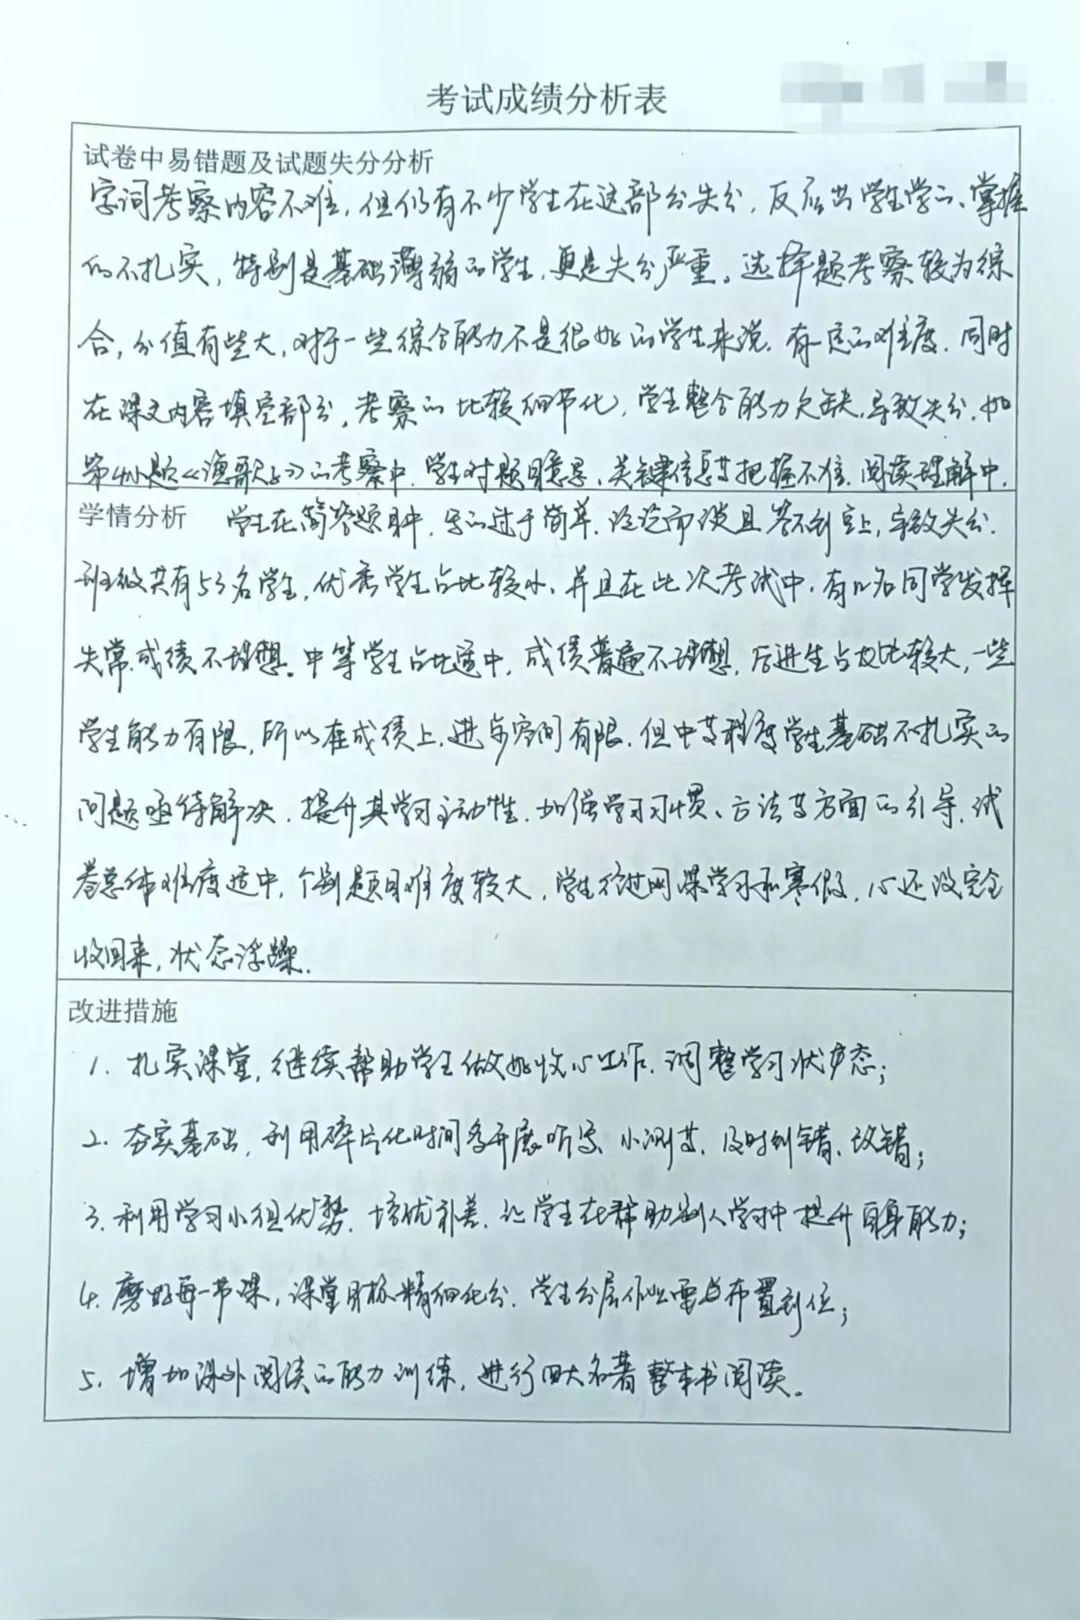 考试成绩分析表
试卷中易错题及试题失分分析
字词考察内容不难，但仍有不少学生在这部分失分，反应出学生学习、掌握
的不扎实，特别是基础薄弱的学生，更是失分严重。选择题考察较为综
合，分值有些大，对于一些综合能力不是很好的学生来说，有一定的难度。同时
在课文内容填空部分，考察的比较细节化，学生整合能力欠缺，导致失分。如
第4小题《渔歌子》的考察中，学生对题目意思、关键信息等把握不准。阅读理解中，
学情分析 学生在简答题目中，写的过于简单，泛泛而谈且答不到点上，导致失分。
班级共有53名学生，优秀学生占比较小，并且在此次考试中，有几名同学发挥
失常，成绩不理想。中等学生占比适中，成绩普遍不理想，后进生占比比较大，一些
学生能力有限，所以在成绩上，进步空间有限。但中等程度学生基础不扎实的
问题亟待解决，提升其学习主动性，加强学习习惯、方法等方面的引导。试
卷总体难度适中，个别题目难度较大，学生经过网课学习和寒假，心还没完全
收回来，状态浮躁。
改进措施
1. 扎实课堂，继续帮助学生做好收心工作，调整学习状态；
2. 夯实基础，利用碎片化时间多开展听写、小测等，及时纠错、改错；
3. 利用学习小组优势，培优补差，让学生在帮助别人学习中提升自身能力；
4. 磨好每一节课，课堂目标精细化分，学生分层作业要点布置到位；
5. 增加课外阅读的能力训练，进行四大名著整本书阅读。